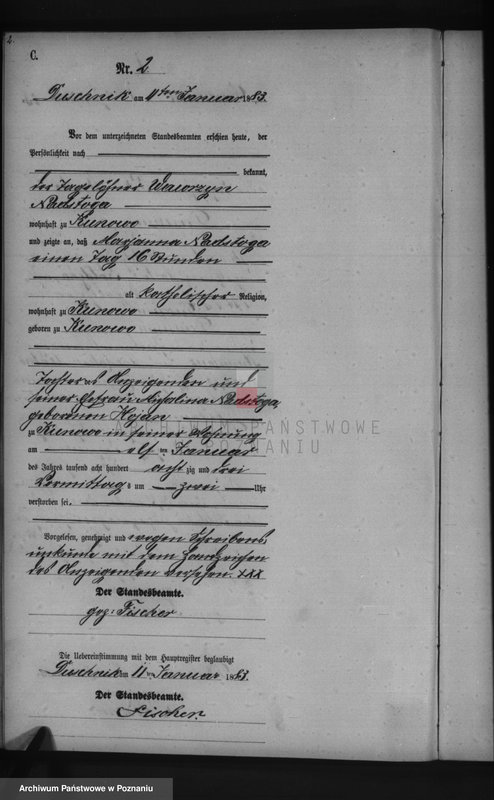 2.
C.
Nr. 2
Duschnik am 11ten Januar 1883.
Vor dem unterzeichneten Standesbeamten erschien heute, der
Persönlichkeit nach
bekannt,
der Tagelöhner Wawrzyn
Nadstoga
wohnhaft zu Kunowo
und zeigte an, daß Maryanna Nadstoga
einen Tag 16 Stunden
alt katholischer Religion,
wohnhaft zu Kunowo
geboren zu Kunowo
Tochter des Anzeigenden und
seiner Ehefrau Nadstoga,
geborenen Hojan
zu Kunowo in seiner Wohnung
am elf ten Januar
des Jahres tausend acht hundert acht zig und drei
Vormittags um zwei Uhr
verstorben sei.
Vorgelesen, genehmigt und wegen Schreibens
unkunde mit dem Handzeichen
des Anzeigenden versehen. XXX
Der Standesbeamte.
gez: Fischer
Die Uebereinstimmung mit dem Hauptregister beglaubigt
Duschnik am 11ten Januar 1883.
Der Standesbeamte.
Fischer.
ARCHIWUM PAŃSTWOWE
W POZNANIU
Archiwum Państwowe w Poznaniu